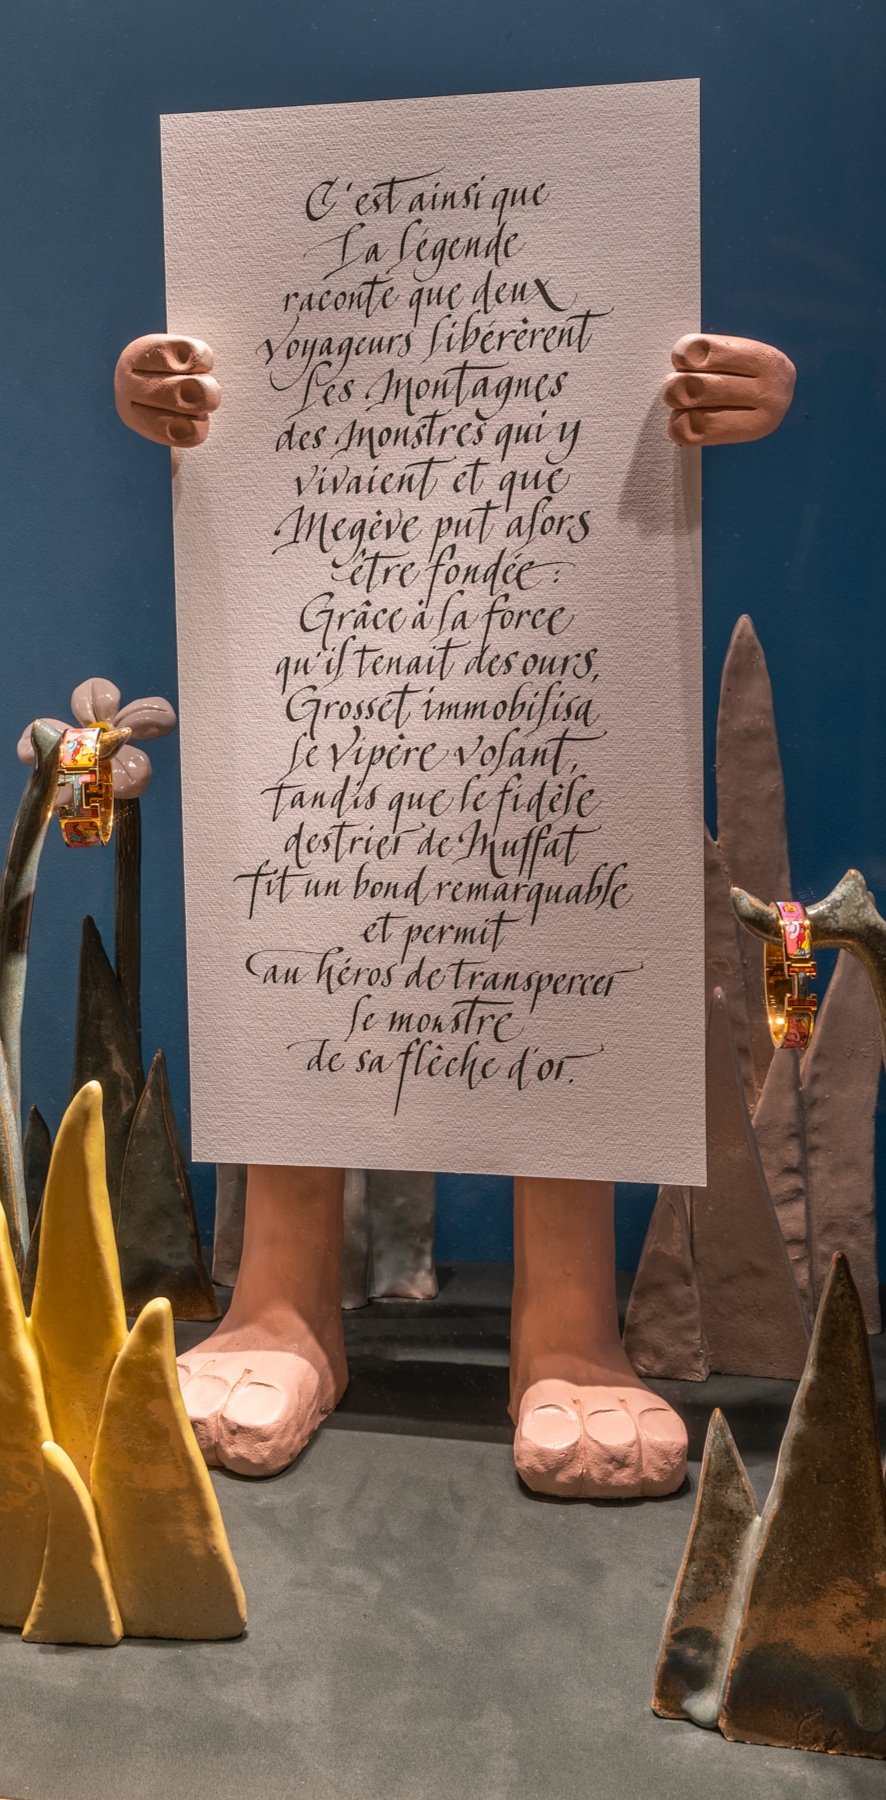 C'est ainsi que
La légende
raconte que deux
voyageurs libérèrent
les Montagnes
des Monstres qui y
vivaient et que
Megève put alors
être fondée :
Grâce à la force
qu'il tenait des ours,
Grosset immobilisa
le Vipère volant,
tandis que le fidèle
destrier de Muffat
fit un bond remarquable
et permit
au héros de transpercer
le monstre
de sa flèche d'or.